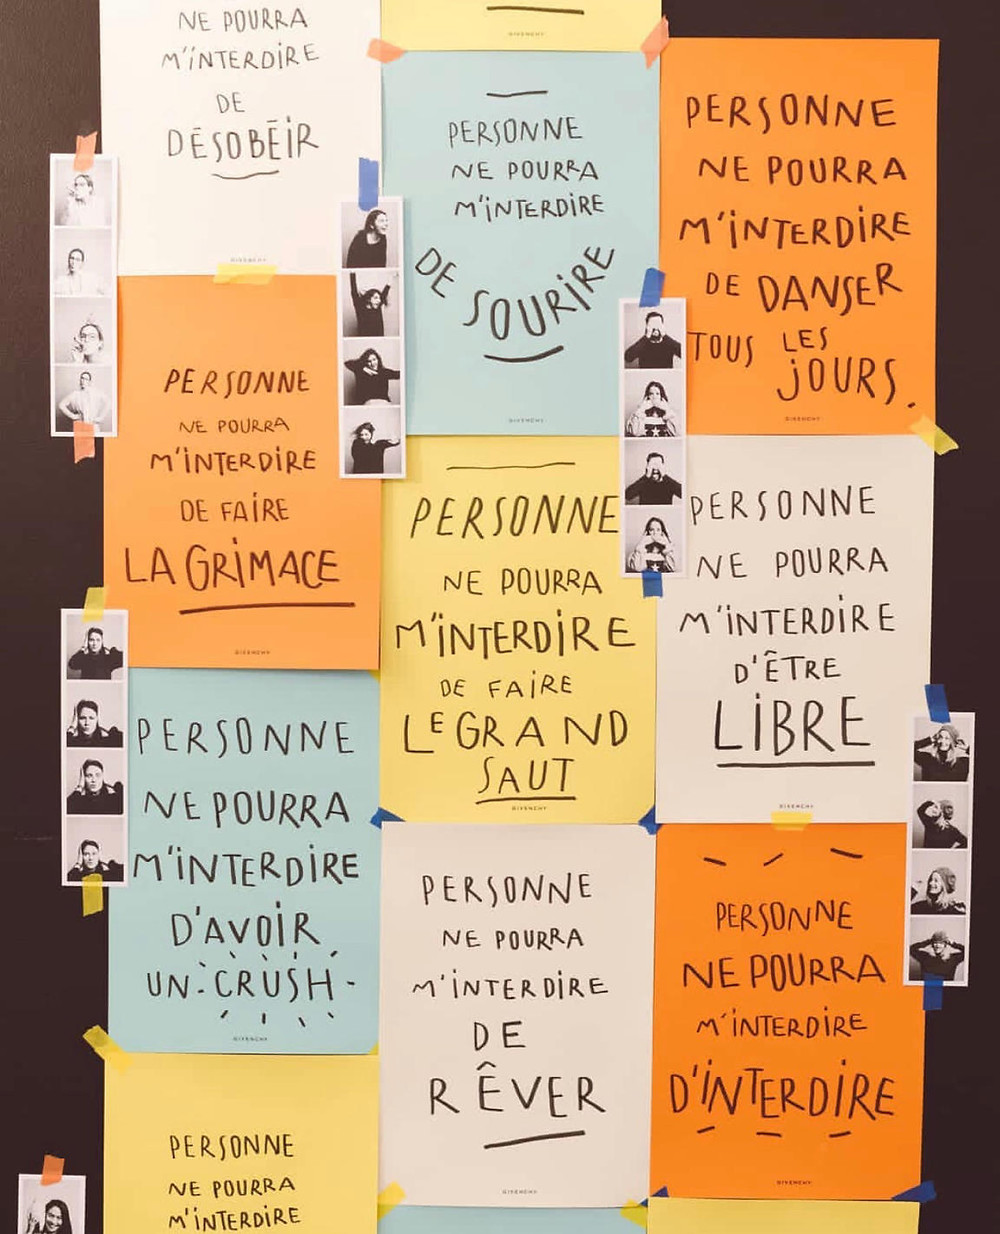 NE POURRA
M'INTERDIRE
DE
DÉSOBÉIR
GIVENCHY
GIVENCHY
PERSONNE
NE POURRA
M'INTERDIRE
DE SOURIRE
GIVENCHY
PERSONNE
NE POURRA
M'INTERDIRE
DE DANSER
TOUS LES
JOURS.
GIVENCHY
PERSONNE
NE POURRA
M'INTERDIRE
DE FAIRE
LA GRIMACE
GIVENCHY
PERSONNE
NE POURRA
M'INTERDIRE
DE FAIRE
LE GRAND
SAUT
GIVENCHY
PERSONNE
NE POURRA
M'INTERDIRE
D'ÊTRE
LIBRE
GIVENCHY
PERSONNE
NE POURRA
M'INTERDIRE
D'AVOIR
UN CRUSH
GIVENCHY
PERSONNE
NE POURRA
M'INTERDIRE
DE
RÊVER
GIVENCHY
PERSONNE
NE POURRA
M'INTERDIRE
D'INTERDIRE
GIVENCHY
PERSONNE
NE POURRA
M'INTERDIRE